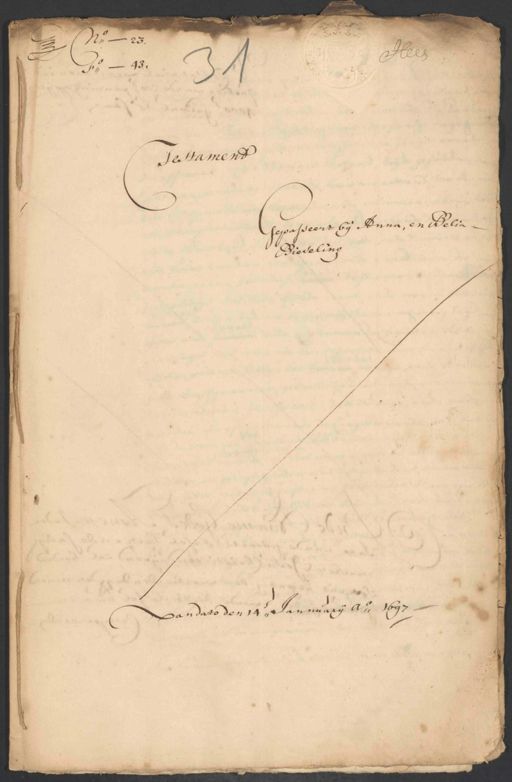 N.º — 23.
F.º — 43.
31
Hees
Testament
Gepasseert bij Anna, en Belia
Bieveling
Van dato den 14.e Iannuarij Aº. 1697